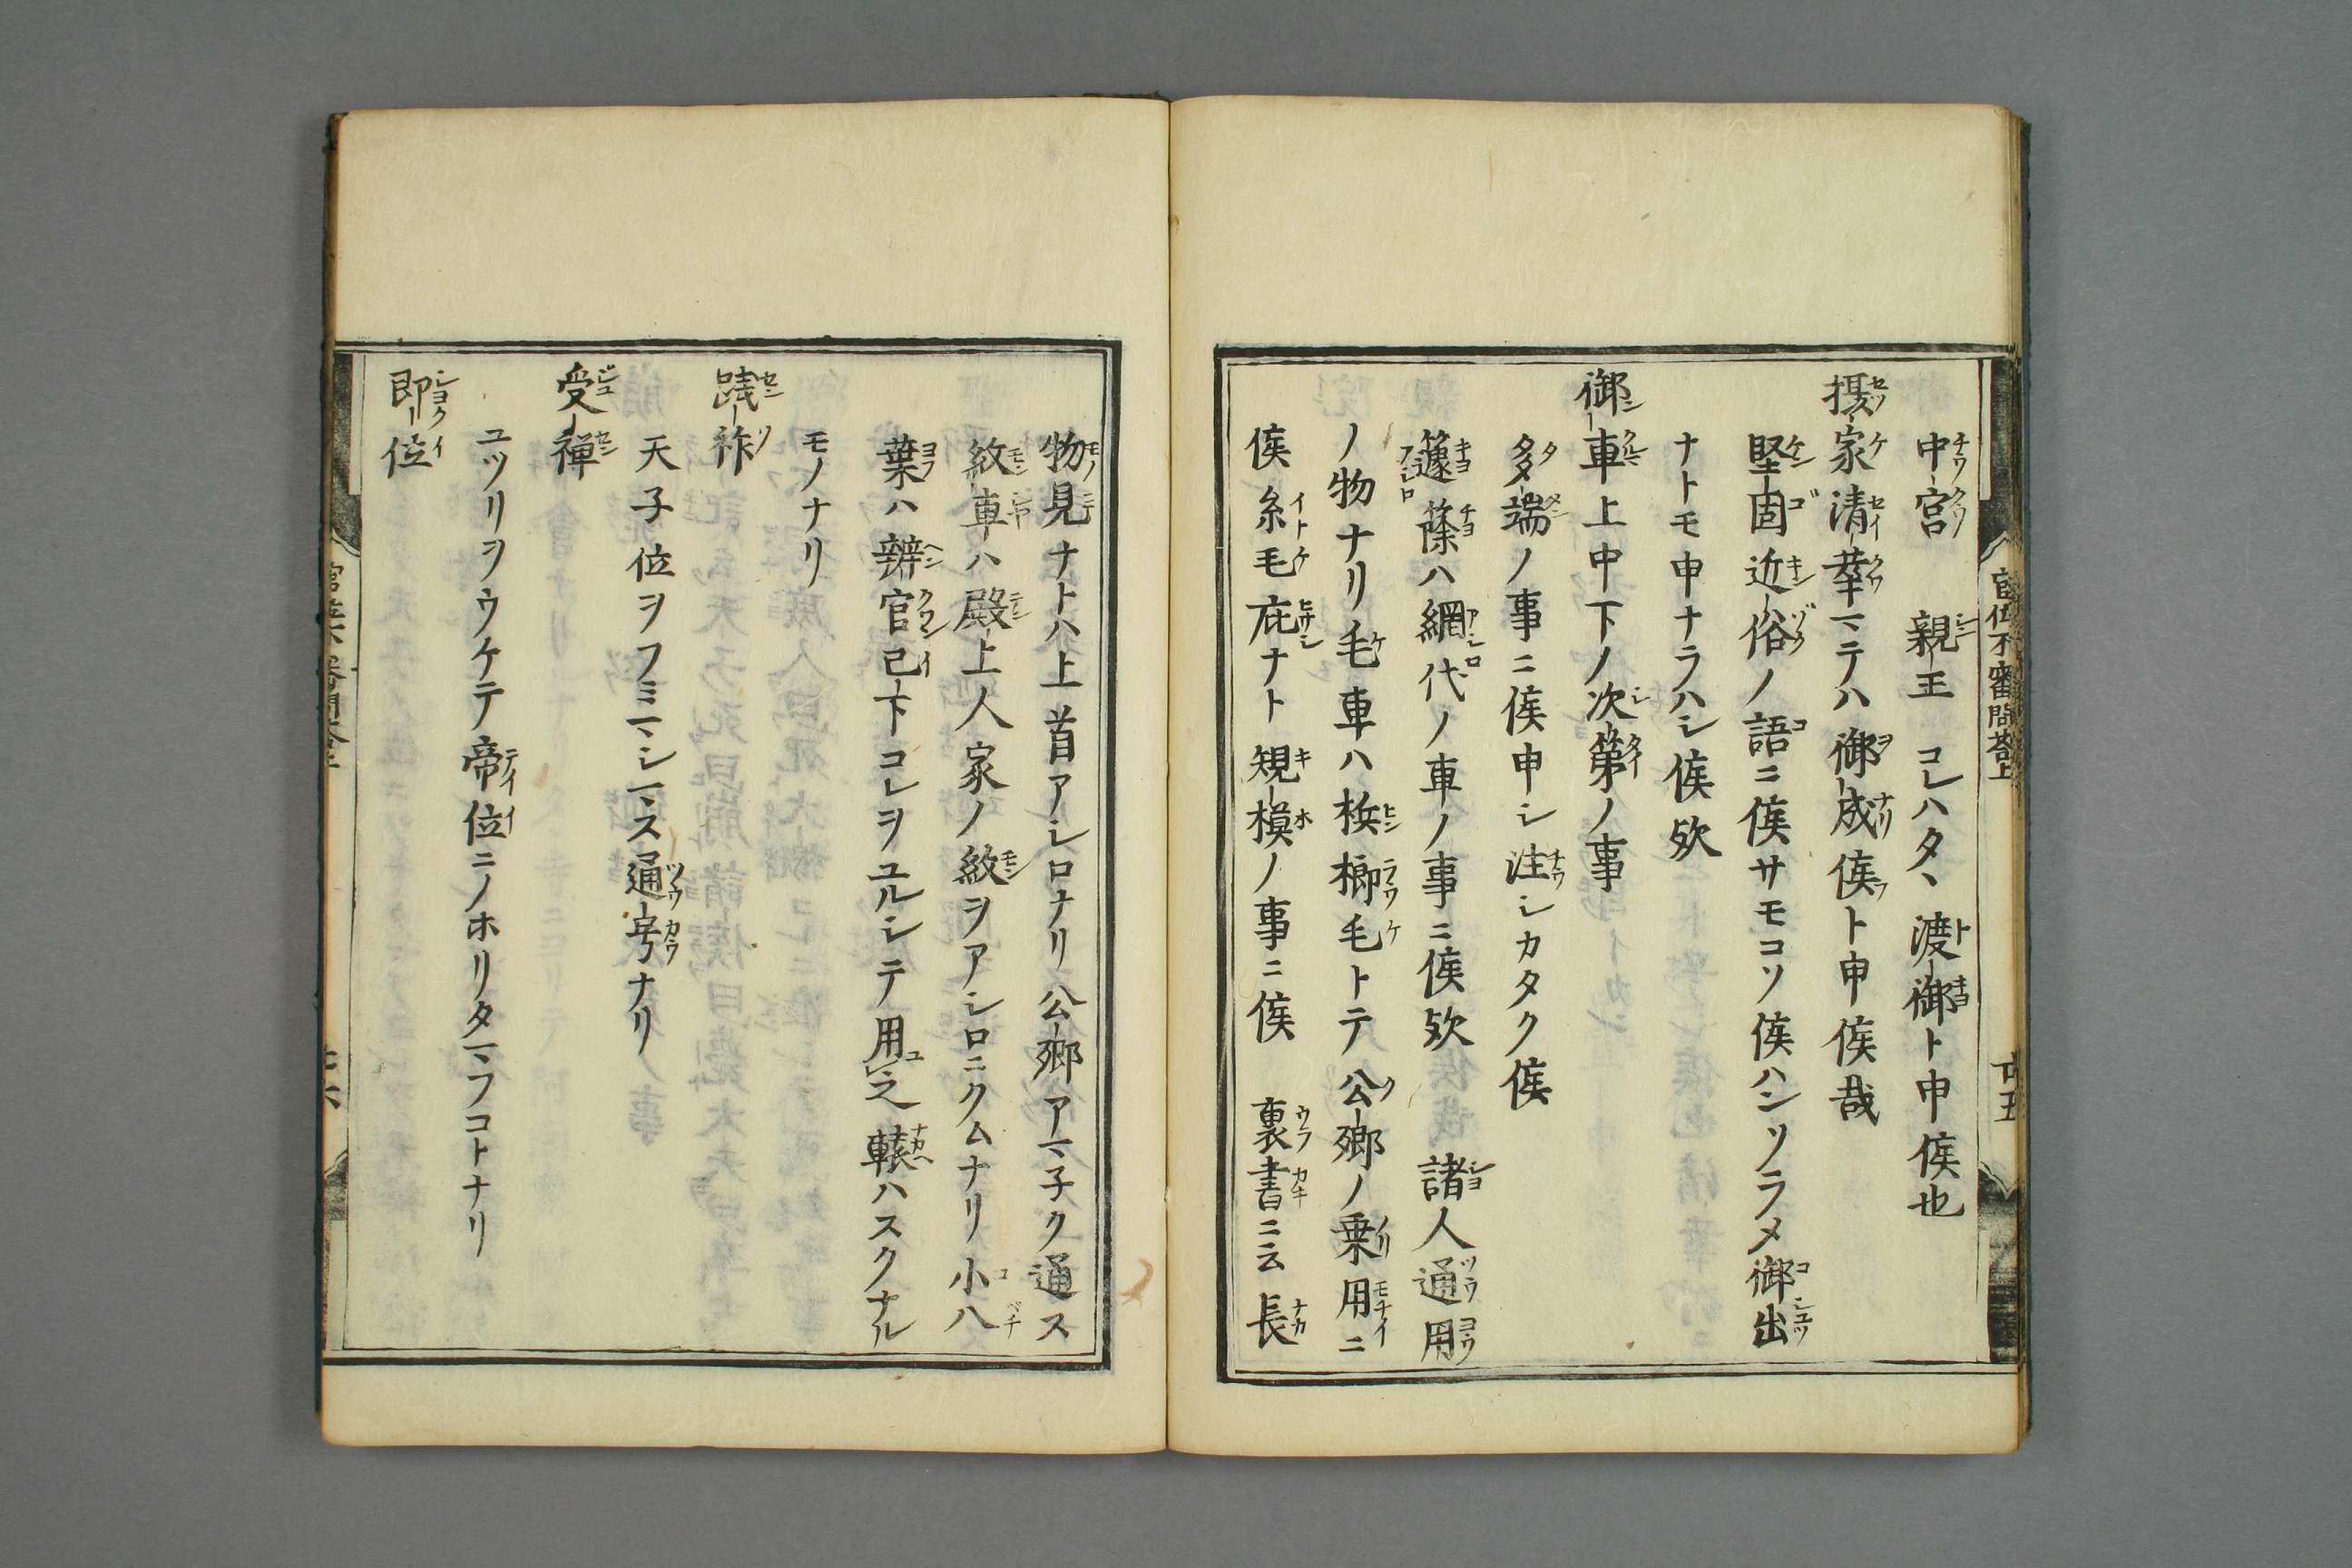 中宮　親王　コレハタヽ渡御ト申候也
摂家清華マテハ御成候ト申候哉
堅固近俗ノ語ニ候サモコソ候ハンツラメ御出
ナトモ申ナラハシ候歟
御車上中下ノ次第ノ事
多端ノ事ニ候申シ注シカタク候
籧篨ハ網代ノ車ノ事ニ候歟　諸人通用
ノ物ナリ毛車ハ梹榔毛トテ公卿ノ乗用ニ
候糸毛庇ナト規模ノ事ニ候　裏書ニ云長
官位不審問荅上　廿五
物見ナトハ上首アシロナリ公卿アマ子ク通ス
紋車ハ殿上人家ノ紋ヲアシロニクムナリ小八
葉ハ辨官已下コレヲユルシテ用之轅ハスクナル
モノナリ
践祚
天子位ヲフミマシマス通号ナリ
受禅
ユツリヲウケテ帝位ニノホリタマフコトナリ
即位